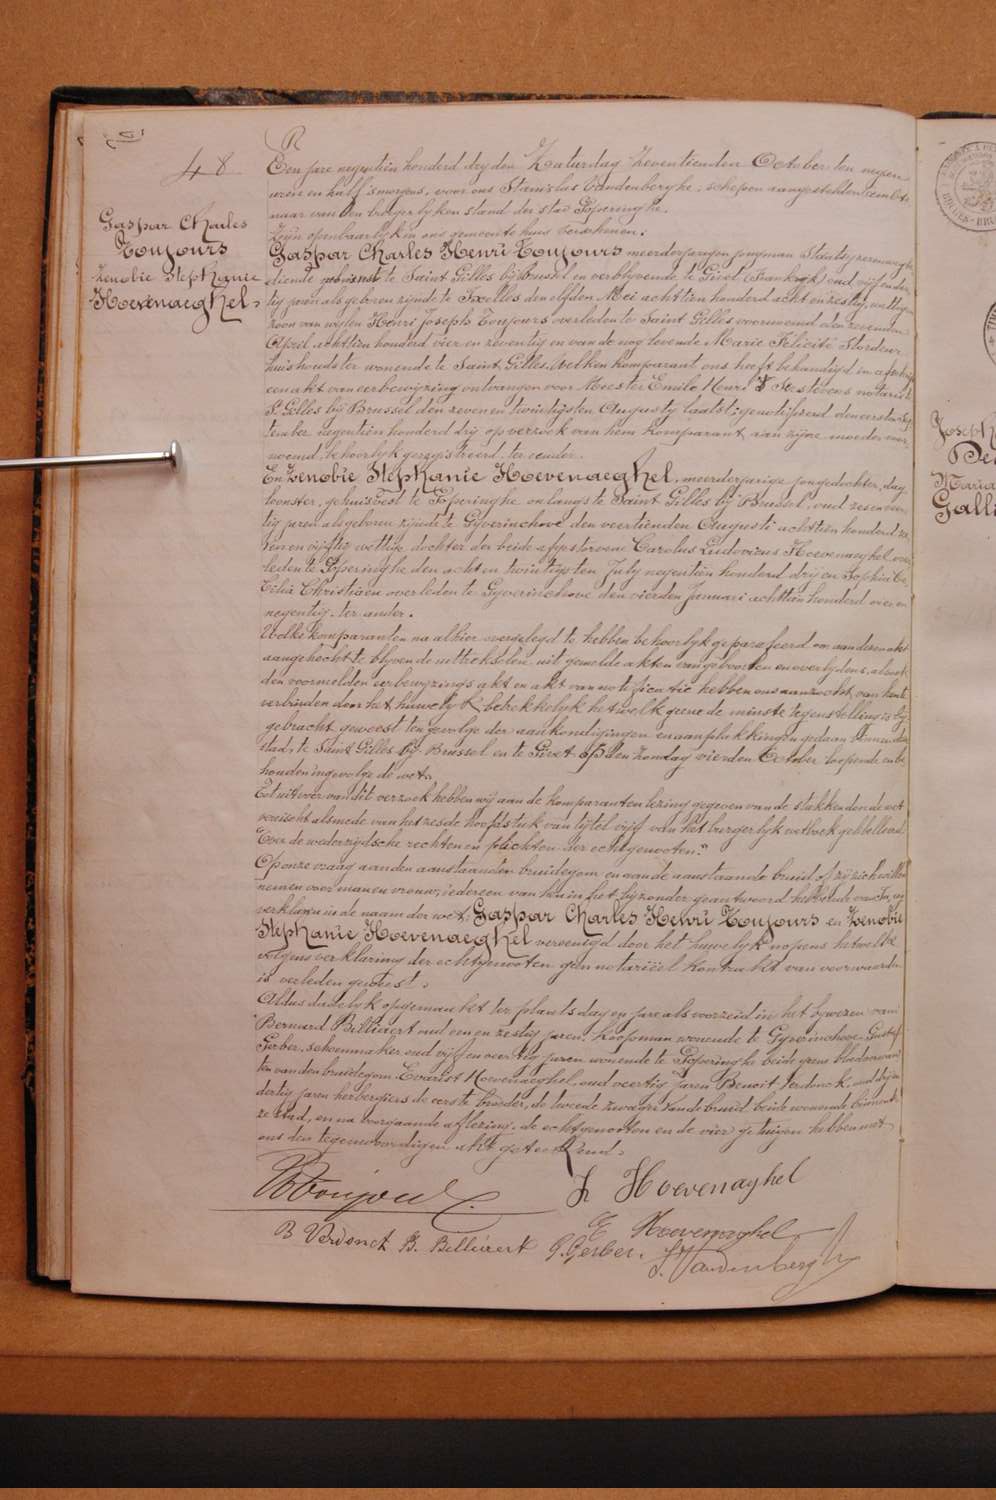 48
R
Een jare negentien honderd dry den Zaturdag Zeventienden October ten negen
uren en half 'smorgens, voor ons Stanislas Vandenberghe, schepen aangestelden ambte-
naar van den burgerlyken stand der stad Poperinghe.
Zyn openbaarlyk in ons gemeente huis verschenen.
Gaspar Charles
Toujours
Zenobie Stephanie
Hoevenaeghel.
Gaspar Charles Henri Toujours meerderjarigen jongman
diende te Saint Gilles bij Brussel en verblyvende te Givet (Frankryk) oud vyf en der-
tig jaren als geboren zijnde te Ixelles den elfden Mei achttien honderd acht en zestig, wettigen
zoon van wylen Henri Joseph Toujours overleden te Saint Gilles voornoemd den zevenden
April achttien honderd vier en zeventig en van de nog levende Marie Félicité Stordeur
huishoudster wonende te Saint Gilles. Welken komparant ons heeft behandigd in afschrift
eenen akt van eerbewyzing ontvangen voor Meester Emile Henri notaris te
St Gilles bij Brussel den zeven en twintigsten Augusty laatst; genotifieerd den eersten Sep-
tember negentien honderd dry op verzoek van hem komparant aan zijne moeder voor-
noemd, behoorlyk geregistreerd. ter eender.
En Zenobie Stephanie Hoevenaeghel, meerderjarige jongedochter, dag-
loonster, gehuisvest te Poperinghe onlangs te Saint Gilles bij Brussel, oud zes en veer-
tig jaren als geboren zijnde te Gyverinchove den veertienden Augusti achttien honderd ze-
ven en vijftig wettige dochter der beide afgestorvene Carolus Ludovicus Hoevenaeghel over-
leden te Poperinghe den acht en twintigsten July negentien honderd drij en Sophia Ce-
cilia Christiaen overleden te Gyverinchove den vierden Januari achttien honderd vier en
negentig. ter ander.
Welke komparanten na alhier overgelegd te hebben behoorlyk geparafeerd om aan dezen akt
aangehecht te blyven de uittreksels uit gemelde akten van geboorten en overlydens, alsook
den voormelden eerbewyzings akt en akt van notificatie hebben ons aanzocht van hunt
verbinden door het huwelyk betrekkelyk hetwelk geene de minste tegenstelling is by-
gebracht geweest ten gevolge der aankondigingen en aanplakkingen gedaan binnen deze
stad, te Saint Gilles bij Brussel en te Givet op den zondag vierden October loopende en be-
houden ingevolge de wet.
Tot uitvoer van dit verzoek hebben wij aan de komparanten lezing gegeven van de stukken door de wet
vereischt alsmede van het zesde hoofdstuk van tytel vijf van het burgerlyk wetboek getiteld
"Over de wederzijdsche rechten en plichten der echtgenooten."
Op onze vraag aan den aanstaanden bruidegom en aan de aanstaande bruid of zij zich willen
nemen voor man en vrouw, iedereen van hun in het byzonder geantwoord hebbende van Ja, wij
verklaren in de naam der wet; Gaspar Charles Henri Toujours en Zenobie
Stephanie Hoevenaeghel vereenigd door het huwelyk nopens hetwelke
volgens verklaring der echtgenooten geen notariëel kontrakt van voorwaarden
is verleden geweest.
Aldus dadelyk opgemaakt ter plaats dag en jare als voorzeid in het bywezen van
Bernard Bellièrert oud een en zestig jaren, koopman wonende te Gyverinchove. Gustaf
Gerber, schoenmaker oud vijf en veertig jaren wonende te Poperinghe beide geene bloedverwan-
ten van den bruidegom. Evarist Hoevenaeghel, oud veertig jaren Benoit Verdonck, oud dry en
dertig jaren herbergiers de eerste broeder, de tweede zwager van de bruid, beide wonende binnen de-
ze stad, en na voorgaande aflezing, de echtgenooten en de vier getuigen hebben met
ons den tegenwoordigen akt geteekend.
Toujours Z Hoevenaeghel
E Hoevenaeghel
B Verdonck B. Bellièrert G. Gerber. S. Vandenberghe
Joseph
Maria
Galli